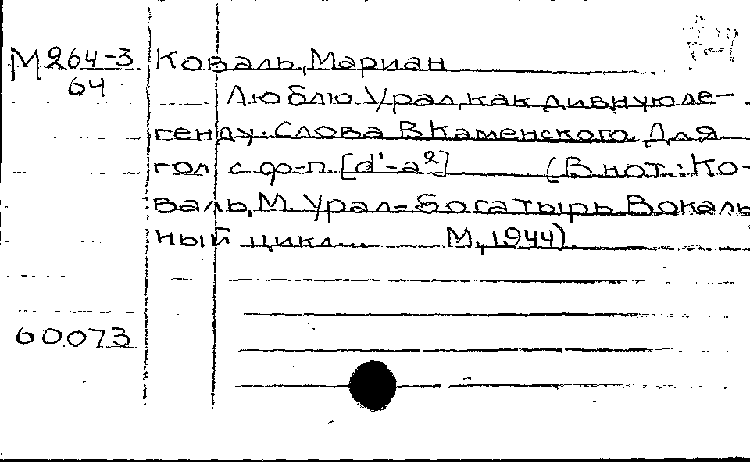 М 264-3 Коваль, Мариан
64
Люблю Урал, как дивную ле-
генду. Слова В. Каменского. Для
гол с ф-п. [d¹-a²] (В нот.: Ко-
валь, М. Урал-богатырь. Вокаль
ный цикл... М., 1944).
60073